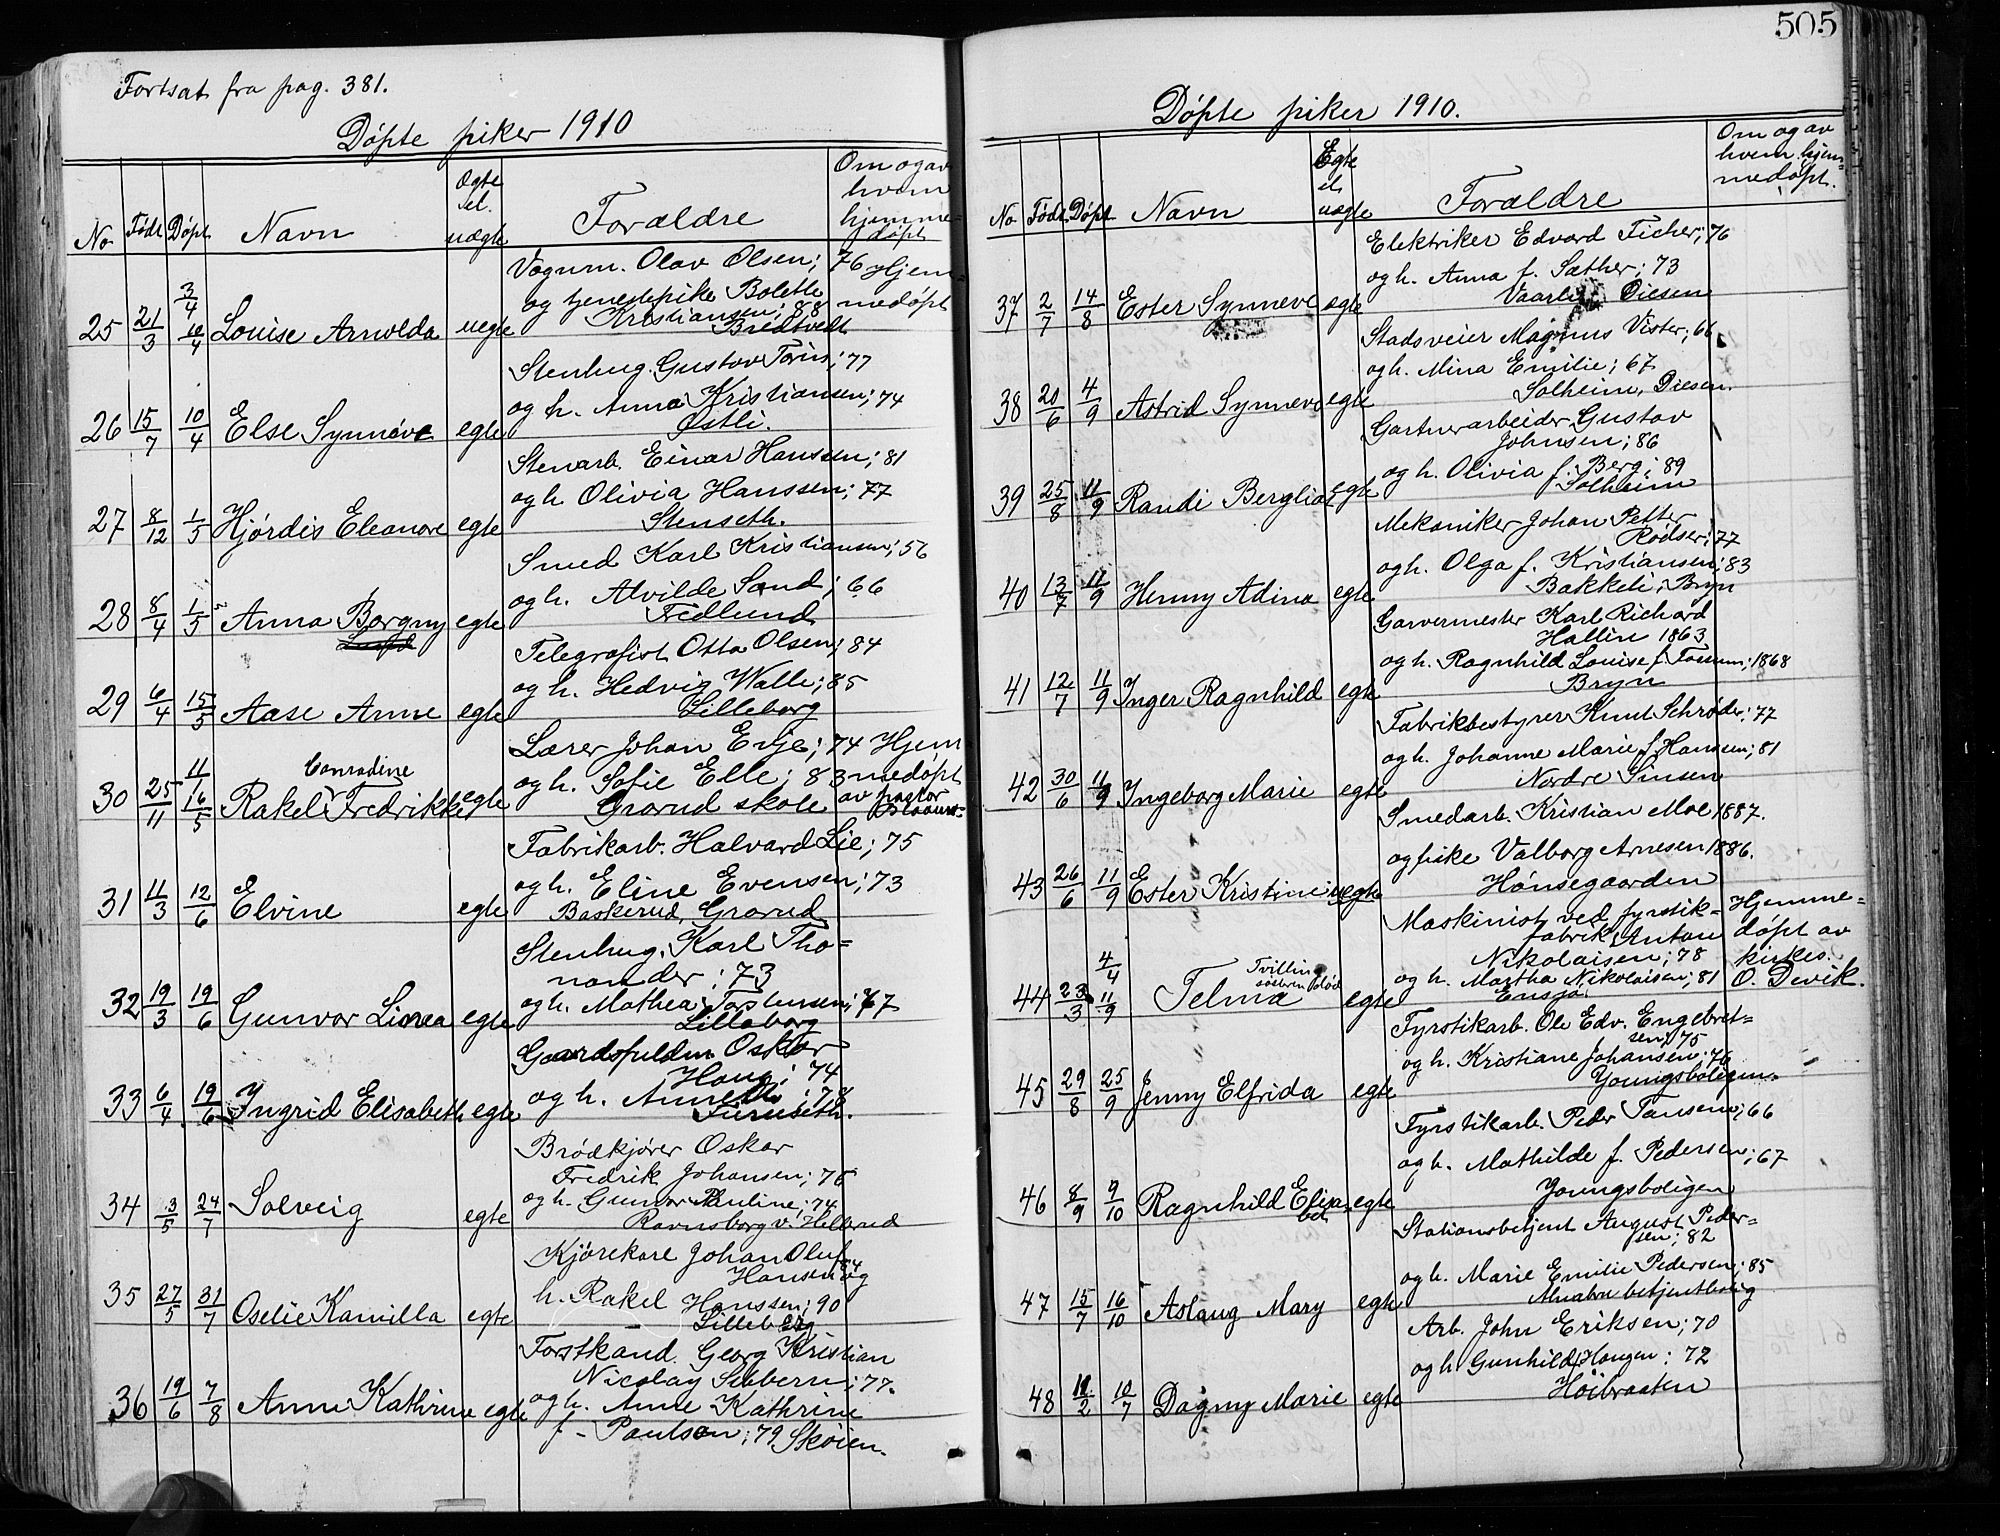 505
Fortsat fra pag. 381.
Døpte piker 1910
No Født Døpt Navn Ægte el. uægte Forældre Om og av hvem hjemmedøpt
25 21/3 3/4 Louise Arnolda uegte Vognm. Olav Olsen; 76 Hjem-
og tjenestepike Bolette medøpt
Kristiansen; 88
Bredtvedt
26 15/7 10/4 Else Synnøve egte Stenhug. Gustav; 77
og h. Anna Kristiansen; 74
Østli.
27 8/12 1/5 Hjørdis Eleanore egte Stenarb. Einar Hanssen; 81
og h. Olivia Hanssen; 77
Stenseth.
28 8/4 1/5 Anna Borgny egte Smed Karl Kristiansen; 56
og h. Alvilde Sand; 66
Fredlund
29 6/4 15/5 Aase Anne egte Telegrafist Otto Olsen; 84
og h. Hedvig Walle; 85
Lilleborg
30 25/11 11/1 16/5 Rakel Conradine Fredrikke egte Lærer Johan Evje; 74 Hjem-
og h. Sofie Elle; 83 medøpt
Grorud skole av pastor
31 11/3 12/6 Elvine egte Fabrikarb. Halvard Lie; 75
og h. Eline Evensen; 73
Baskerud, Grorud
32 19/3 19/6 Gunvor Linea egte Stenhug. Karl Tho-
nander; 73
og h. Mathea Torstensen; 67
Lilleborg
33 6/4 19/6 Ingrid Elisabeth egte Gaardsfuldm Oskar
Haug; 74
og h. Annette; 78
Furuseth.
34 3/5 24/7 Solveig egte Brødkjører Oskar
Fredrik Johansen; 76
og h. Gunvor Pauline; 74
Ravnsborg v. Hellerud
35 27/5 31/7 Oselie Kamilla egte Kjørekare Johan Oluf
Hansen 84 og
h. Rakel Hanssen; 90
Lilleborg
36 19/6 7/8 Anne Kathrine egte Forstkand. Georg Kristian
Nicolay Sibbern; 77.
og h. Anne Kathrine
f. Paulsen; 79 Skøien.
Døpte piker 1910.
No Født Døpt Navn Egte el. uægte Forældre Om og av hvem hjem-medøpt.
37 2/7 14/8 Ester Synneve egte Elektriker Edvard Ficher; 76
og h. Anna f. Sæther; 73
Diesen
38 20/6 4/9 Astrid Synneve egte Stadsveier Magnus Vister; 66
og h. Mina Emilie; 67
Solheim, Diesen.
39 25/8 11/9 Randi Berglia egte Gartnerarbeider Gustav
Johnsen; 86
og h. Olivia f. Berg; 89
Solheim
40 13/7 11/9 Henny Adina egte Mekaniker Johan Petter
Rødser; 77
og h. Olga f. Kristiansen; 83
Bakkeli, Bryn
41 12/7 11/9 Inger Ragnhild egte Garvermester Karl Richard
Hallin 1863
og h. Ragnhild Louise f. Fossum; 1868
Bryn
42 30/6 11/9 Ingeborg Marie egte Fabrikbestyrer Knut Schrøder; 77
og h. Johanne Marie f. Hansen; 81
Nordre Sinsen
43 26/6 11/9 Ester Kristine uegte Smedarb. Kristian Moe 1887.
og pike Valborg Arnesen 1886.
Hønsegaarden
44 23/3 4/4 11/9 Telma Tvilling søstren død egte Maskinist ved fyrstik- Hjemme-
fabrik. Anton døpt av
Nikolaisen; 78 kirkes.
og h. Martha Nikolaisen; 81 O. Devik.
Ensjø.
45 29/8 25/9 Jenny Elfrida egte Fyrstikarb. Ole Edv. Engebret-
sen; 75
og h. Kristiane Johansen; 76
Youngsboligen.
46 8/9 9/10 Ragnhild Elisa-bet egte Fyrstikarb. Peder Jansen; 66
og h. Mathilde f. Pedersen; 67
Youngsboligen
47 15/7 16/10 Aslaug Mary egte Stationsbetjent August Peder-
sen; 82
og h. Marie Emilie Pedersen; 85
Alnabru betjentbolig
48 11/2 10/7 Dagny Marie egte Arb. John Eriksen; 70
og h. Gunhild Haugen; 72
Høibraaten